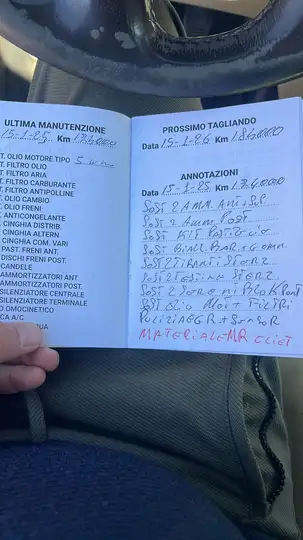 ULTIMA MANUTENZIONE
15-1-25 Km 174000
T. OLIO MOTORE TIPO 5 W
T. FILTRO OLIO
T. FILTRO ARIA
T. FILTRO CARBURANTE
T. FILTRO ANTIPOLLINE
T. OLIO CAMBIO
T. OLIO FRENI
. ANTICONGELANTE
. CINGHIA DISTRIB.
. CINGHIA ALTERN.
. CINGHIA COM. VARI
. PAST. FRENI ANT.
DISCHI FRENI POST.
CANDELE
AMMORTIZZATORI ANT.
AMMORTIZZATORI POST.
SILENZIATORE CENTRALE
SILENZIATORE TERMINALE
O OMOCINETICO
CA A/C
QUA
PROSSIMO TAGLIANDO
Data 15-1-26 Km 184000
ANNOTAZIONI
15-1-25 Km 174000
SOST 2 AMM. ANT+
SOST 2 AMM. POST
SOST
SOST BIALL. BAR+
SOST 2 TIRANTI STERZ
SOST 2 TESTINE STERZ
SOST 2 POST
SOST OLIO MOT+FILTRI
PULIZIA EGR+SENSOR
MATERIALE MR CLIET